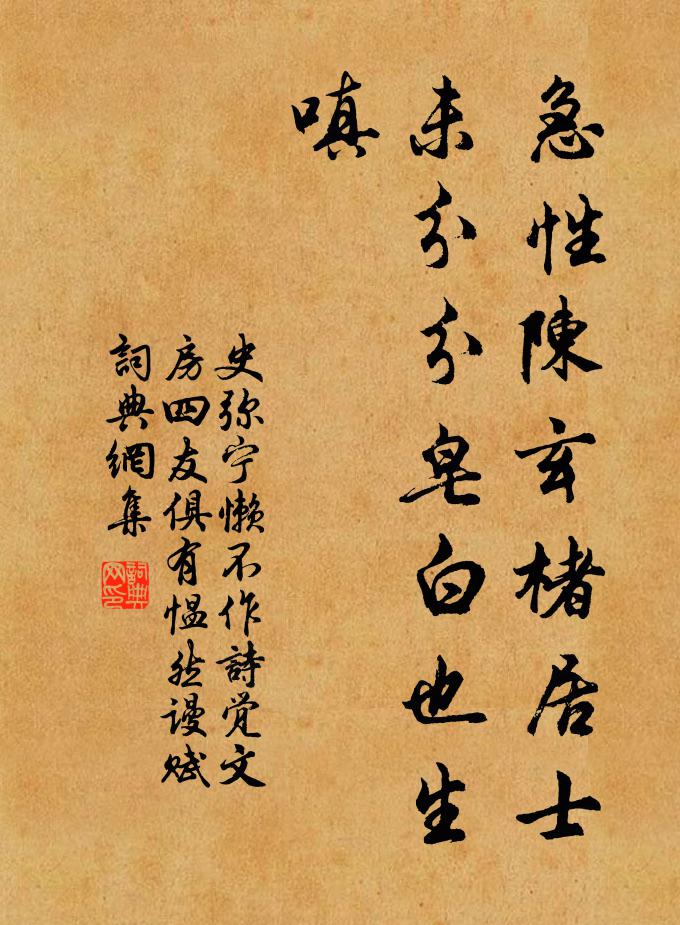 急性陳玄楮居士
未分分皂白也生
嗔
史弥宁懒不作詩觉文
房四友俱有愠然谩赋
詞典網集
詞典网印